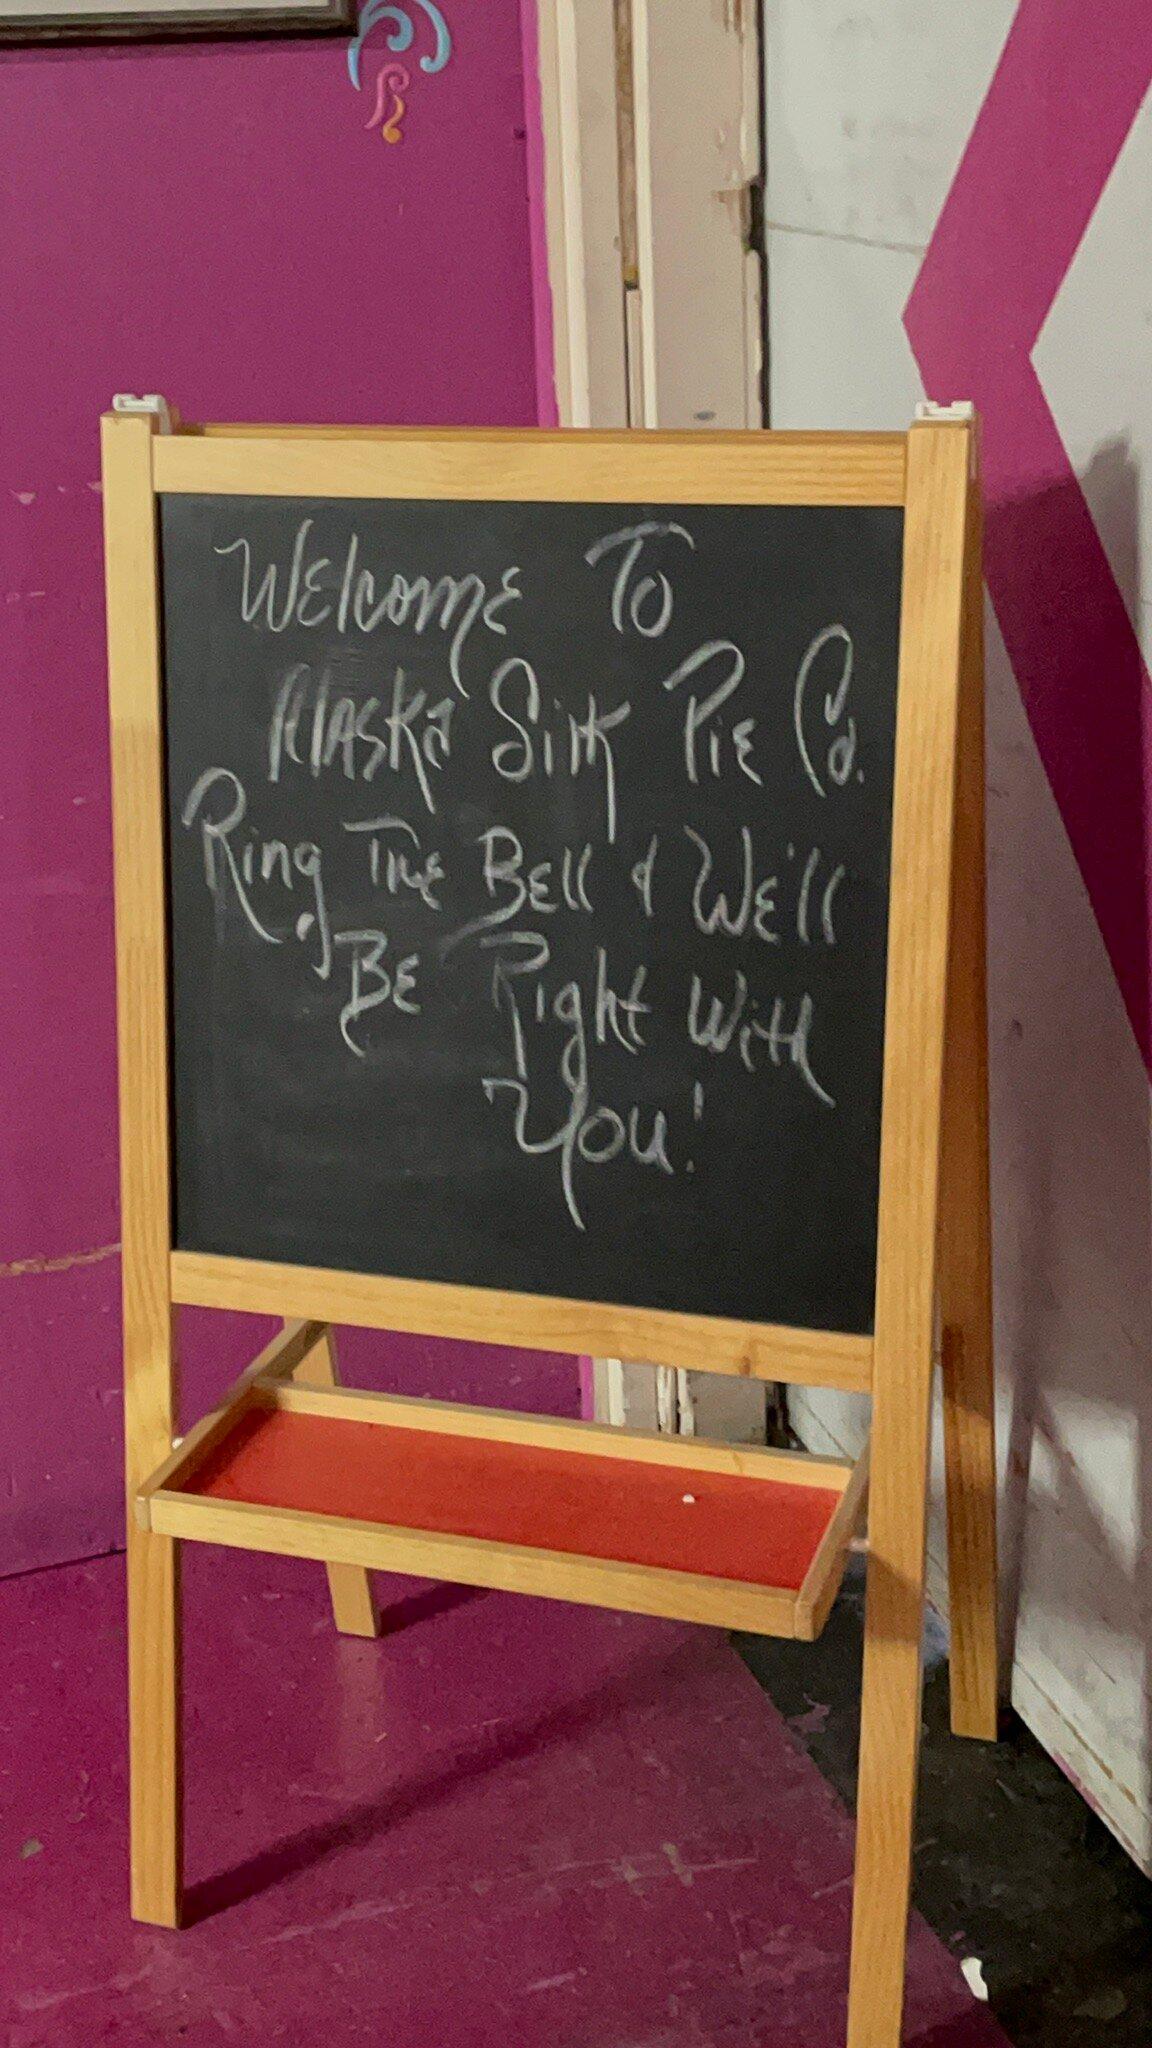 Welcome To
Alaska Silk Pie Co.
Ring The Bell & We'll
Be Right With
You!